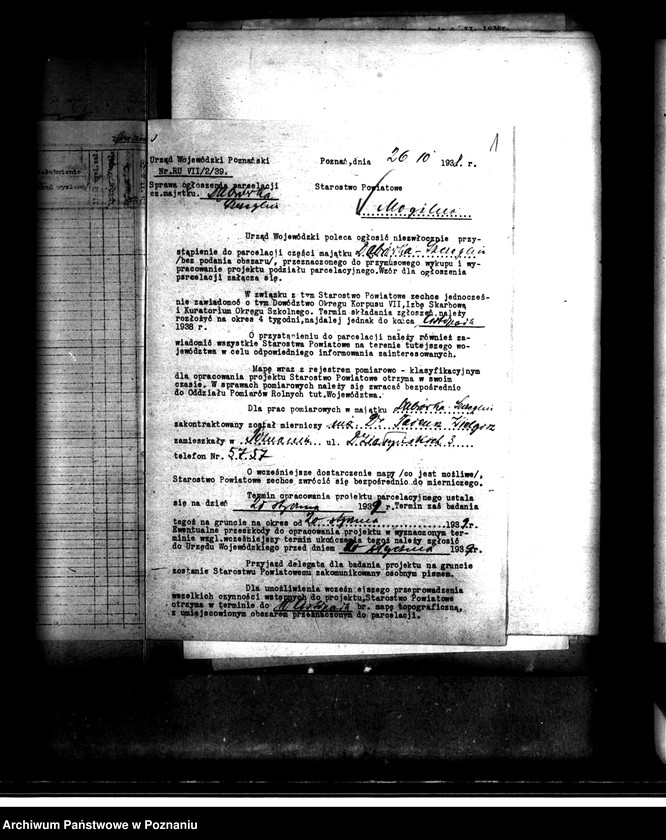 1
Urząd Wojewódzki Poznański
Nr.RU VII/2/39.
Poznań,dnia 26 10 1938. r.
Sprawa ogłoszenia parcelacji
cz.majątku. Dąbrówka
Starostwo Powiatowe
Mogilno
Urząd Wojewódzki poleca ogłosić niezwłocznie przy-
stąpienie do parcelacji części majątku Dąbrówka-
/bez podania obszaru/, przeznaczonego do przymusowego wykupu i wy-
pracowanie projektu podziału parcelacyjnego.Wzór dla ogłoszenia
parcelacji załącza się.
W związku z tym Starostwo Powiatowe zechce jednocześ-
nie zawiadomić o tym Dowództwo Okręgu Korpusu VII,Izbę Skarbową
i Kuratorium Okręgu Szkolnego. Termin składania zgłoszeń należy
rozłożyć na okres 4 tygodni,najdalej jednak do końca listopada
1938 r.
O przystąpieniu do parcelacji należy również za-
wiadomić wszystkie Starostwa Powiatowe na terenie tutejszego wo-
jewództwa w celu odpowiedniego informowania zainteresowanych.
Mapę wraz z rejestrem pomiarowo - klasyfikacyjnym
dla opracowania projektu Starostwo Powiatowe otrzyma w swoim
czasie. W sprawach pomiarowych należy się zwracać bezpośrednio
do Oddziału Pomiarów Rolnych tut.Województwa.
Dla prac pomiarowych w majątku Dąbrówka-
zakontraktowany został mierniczy inż. Dr.
zamieszkały w Poznaniu ul. Działyńskich 3
telefon Nr. 57.57
O wcześniejsze dostarczenie mapy /co jest możliwe/,
Starostwo Powiatowe zechce zwrócić się bezpośrednio do mierniczego.
Termin opracowania projektu parcelacyjnego ustala
się na dzień 20 stycznia 1939 r.Termin zaś badania
tegoż na gruncie na okres od 20 stycznia 1939r.
Ewentualne przeszkody do opracowania projektu w wyznaczonym ter-
minie wzgl.wcześniejszy termin ukończenia tegoż należy zgłosić
do Urzędu Wojewódzkiego przed dniem 20 stycznia 1939r.
Przyjazd delegata dla badania projektu na gruncie
zostanie Starostwu Powiatowemu zakomunikowany osobnym pismem.
Dla umożliwienia wcześniejszego przeprowadzenia
wszelkich czynności wstępnych do projektu,Starostwo Powiatowe
otrzyma w terminie do 10 listopada br. mapę topograficzną,
z umiejscowionym obszarem przeznaczonym do parcelacji.
Archiwum Państwowe w Poznaniu